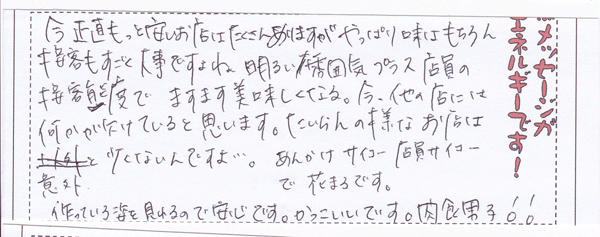 今 正直もっと安いお店はたくさんありますが やっぱり味はもちろん
接客もすごく大事ですよね。明るい雰囲気プラス店員の
接客態度で ますます美味しくなる。今、他の店には
何かが欠けていると思います。たいらんの様なお店は
意外と少くないんですよ…。あんかけ サイコー 店員サイコー
で 花まるです。
作っている姿を見れるので安心です。かっこいいです。肉食男子!!
メッセージが
エネルギーです!